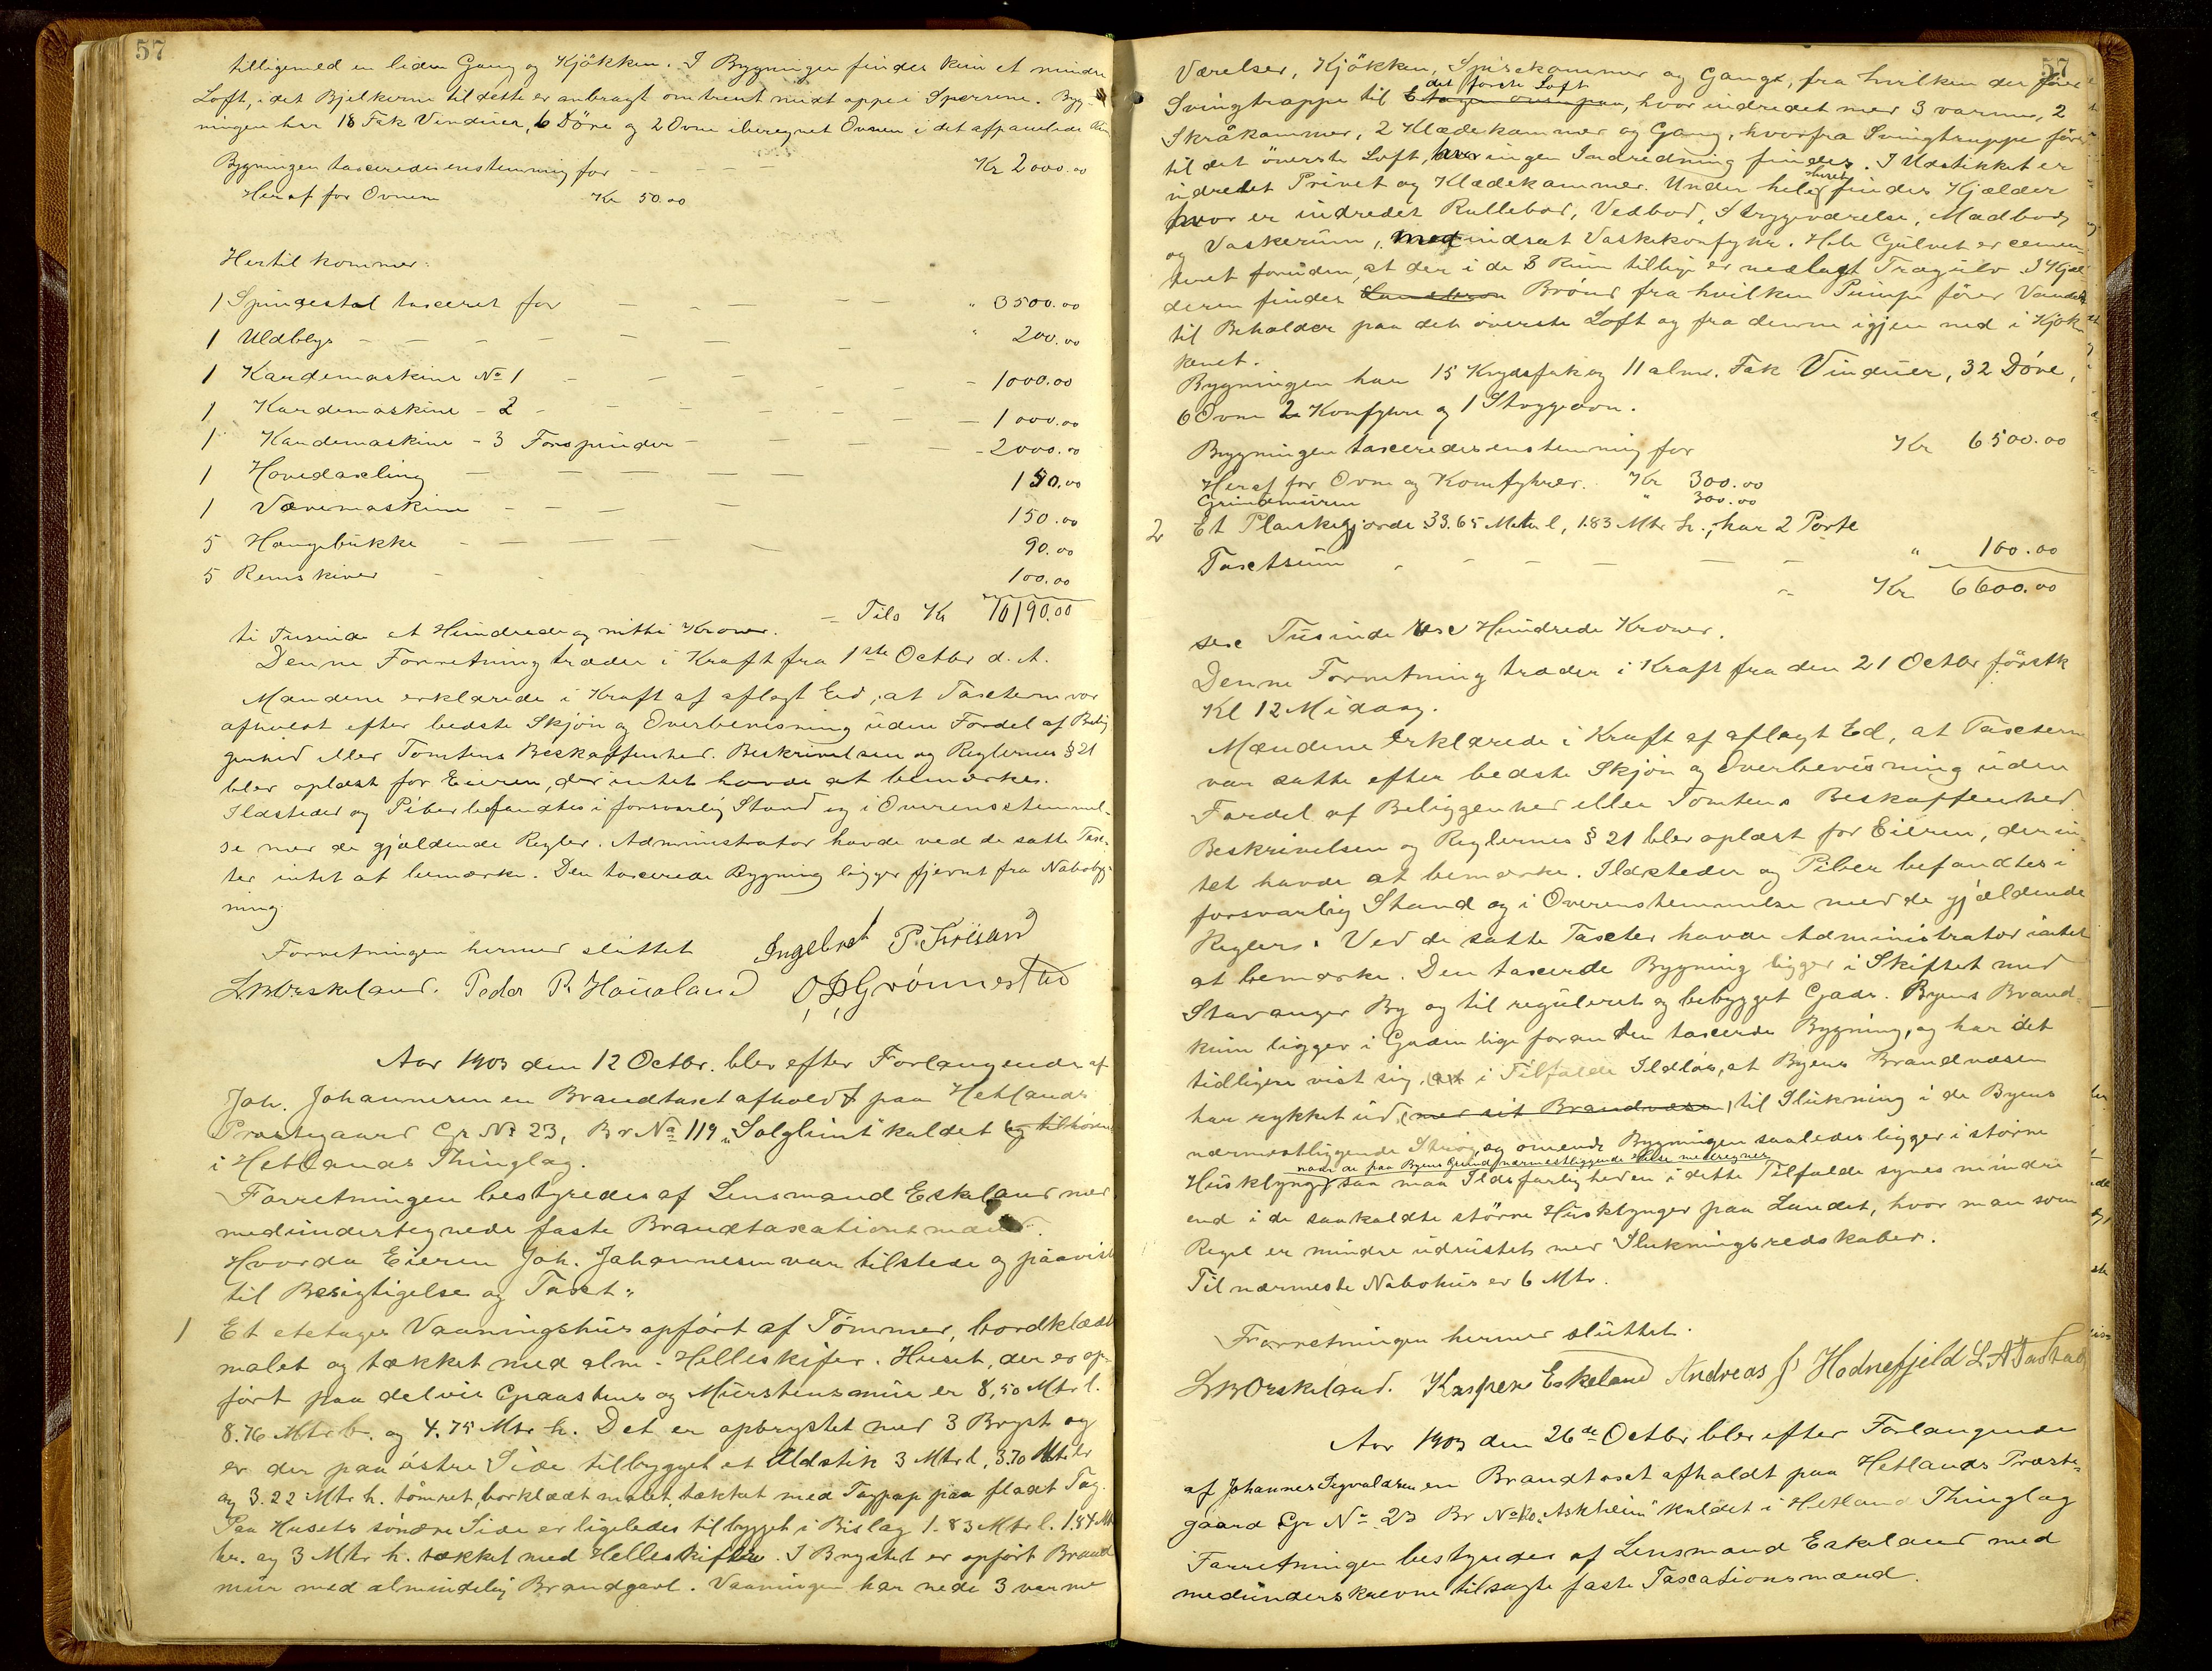 57
tilligemed en liden Gang og Kjökken. I Bygningen findes kun et mindre
Loft, idet Bjelkerne til dette er anbragt omtrent midt oppe i Sperrene. Byg-
ningen har 18 Fak Vinduer, 6 Döre og 2 Ovne iberegnet Ovnen i det afpanelede
Bygningen taxeredes enstemmig for - - - - Kr 2000.00
Heraf for Ovnene Kr 50.00
Hertil kommer:
1 Spindestol taxeret for - - - - " 3500.00
1 Uldbleger - - - - - - " 200.00
1 Kardemaskine No 1 - - - - - 1000.00
1 Kardemaskine - 2 - - - - - 1000.00
1 Kardemaskine - 3 Forspinder - - - - 2000.00
1 Hovedaxling - - - - - 150.00
1 Vævemaskine - - - - 150.00
5 Hængebukke - - - - - 90.00
5 Remskiver - - 100.00
= Tils Kr 10190.00
ti Tusinde et Hundrede og nitti Kroner.
Denne Forretning træder i Kraft fra 1ste Octbr d. A.
Mændene erklærede i Kraft af aflagt Ed, at Taxterne var
afholdt efter bedste Skjön og Overbevisning uden Fordel af Belig
genhed eller Tomtens Beskaffenhed. Beskrivelsen og Reglernes § 21
blev oplæst for Eieren, der intet havde at bemærke.
Ildsteder og Piber befandtes i forsvarlig Stand og i Overensstemmel-
se med de gjældende Regler. Administrator havde ved de satte Tax-
ter intet at bemærke. Den taxerede Bygning ligger fjernt fra Nabobyg-
ning.
Forretningen hermed sluttet Ingebret P.
L M Eskeland. Peder R. Haualand O. P. Grönnestad
Aar 1903 den 12 Octbr. blev efter Forlangende af
Joh. Johannesen en Brandtaxt afholdt paa Hetlands
Præstegaard Gr No 23, Br No 119 „Solglimt" kaldet og tilhören
i Hetlands Thinglag.
Forretningen bestyredes af Lensmand Eskeland med
medundertegnede faste Brandtaxationsmænd.
Hvorda Eieren Joh. Johannesen var tilstede og paaviste
til Besigtigelse og Taxt:
1 Et etetages Vaaningshus opfört af Tömmer, bordklædt
malet og tækket med alm. Helleskifer. Huset, der er op-
fört paa delvis Graastens og Murstensmur er 8,50 Mtr l.
8.76 Mtr b. og 4.75 Mtr h. Det er opbrystet med 3 Bryst og
er der paa östre Side tilbygget et Udstik 3 Mtr l, 3.70 Mtr br
og 3.22 Mtr h. tömret, bordklædt malet, tækket med Tagpap paa fladt Tag.
Paa Husets söndre Side er ligeledes tilbygget i Bislag 1.83 Mtr l. 1.84 Mtr
br. og 3 Mtr h. tækket med Helleskifer. I Brystet er opfört Brand
mur med almindelig Brandgavl. Vaaningen har nede 3 varme
57
Værelser, Kjökken, Spisekammer og Gange, fra hvilken der förer
det förste Loft
Svingtrappe til Etagen ovenpaa, hvor indredet med 3 varme, 2
Skråkammer, 2 Klædekammer og Gang, hvorfra Svingtrappe förer
til det överste Loft, hvor ingen Indredning findes. I Udstikket er
Huset
indredet Privet og Klædekammer. Under hele findes Kjælder
hvor er indredet Rullebod, Vedbod, Strygeværelse, Madbod,
og Vaskerum, med indsat Vaskekomfyhr. Hele Gulvet er cemen-
teret foruden, at der i de 3 Rum tillige er nedlagt Trægulv. I Kjæl-
deren findes Brönd fra hvilken Pumpe förer Vandet
til Beholder paa det överste Loft og fra denne igjen ned i Kjök-
kenet.
Bygningen har 15 Krydsfak og 11 alm. Fak Vinduer, 32 Döre,
6 Ovne 2 Komfyhre og 1 Strygeovn.
Bygningen taxeredes enstemmig for Kr 6500.00
Heraf for Ovne og Komfyhrer. Kr 300.00
Grundmuren " 300.00
2 Et Plankegjærde 33.65 Meter l, 1.83 Mtr h., har 2 Porte
Taxtsum - - - - - - " 100.00
Kr 6600.00
sex Tusinde sex Hundrede Kroner.
Denne Forretning træder i Kraft fra den 21 Octbr förstk
Kl 12 Middag.
Mændene erklærede i Kraft af aflagt Ed, at Taxterne
var satte efter bedste Skjön og Overbevisning uden
Fordel af Beliggenhed eller Tomtens Beskaffenhed.
Beskrivelsen og Reglernes § 21 blev oplæst for Eieren, der in-
tet havde at bemærke. Ildsteder og Piber befandtes i
forsvarlig Stand og i Overenstemmelse med de gjældende
Reglers. Ved de satte Taxter havde Administrator intet
at bemærke. Den taxerde Bygning ligger i Skiftet med
Stavanger By og til reguleret og bebygget Gade. Byens Brand-
kum ligger i Gaden lige foran den taxerde Bygning, og har det
tidligere vist sig, at i Tilfælde Ildlös, at Byens Brandvæsen
har rykket ud, (med sit Brandvæsen) til Slukning i de Byens
nærmestliggende Strög, og omendt Bygningen saaledes ligger i större
naar de paa Byens Grund nærmestliggende Huse medregnes
Husklynge, saa maa Ildsfarligheden i dette Tilfælde synes mindre
end i de saakaldte större Husklynger paa Landet, hvor man som
Regel er mindre udrustet med Slukningsredskaber.
Til nærmeste Nabohus er 6 Mtr.
Forretningen hermed sluttet.
L M Eskeland. Kasper Eskeland Andreas J. Hodnefjeld L. A. Tastad
Aar 1903 den 26de Octbr blev efter Forlangende
af Johannes Sigvaldsen en Brandtaxt afholdt paa Hetlands Præste-
gaard Gr No 23 Br No „Askheim" kaldet i Hetland Thinglag
Forretningen bestyredes af Lensmand Eskeland med
medunderskrevne tilsagte faste Taxationsmænd.